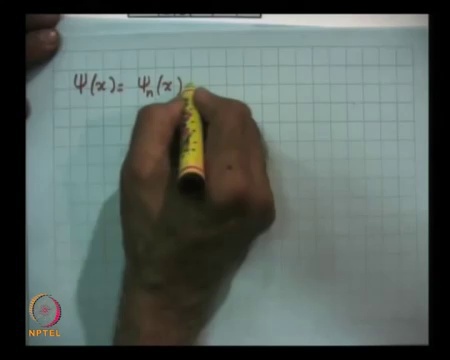 Ψ(x) = Ψₙ(x)
NPTEL